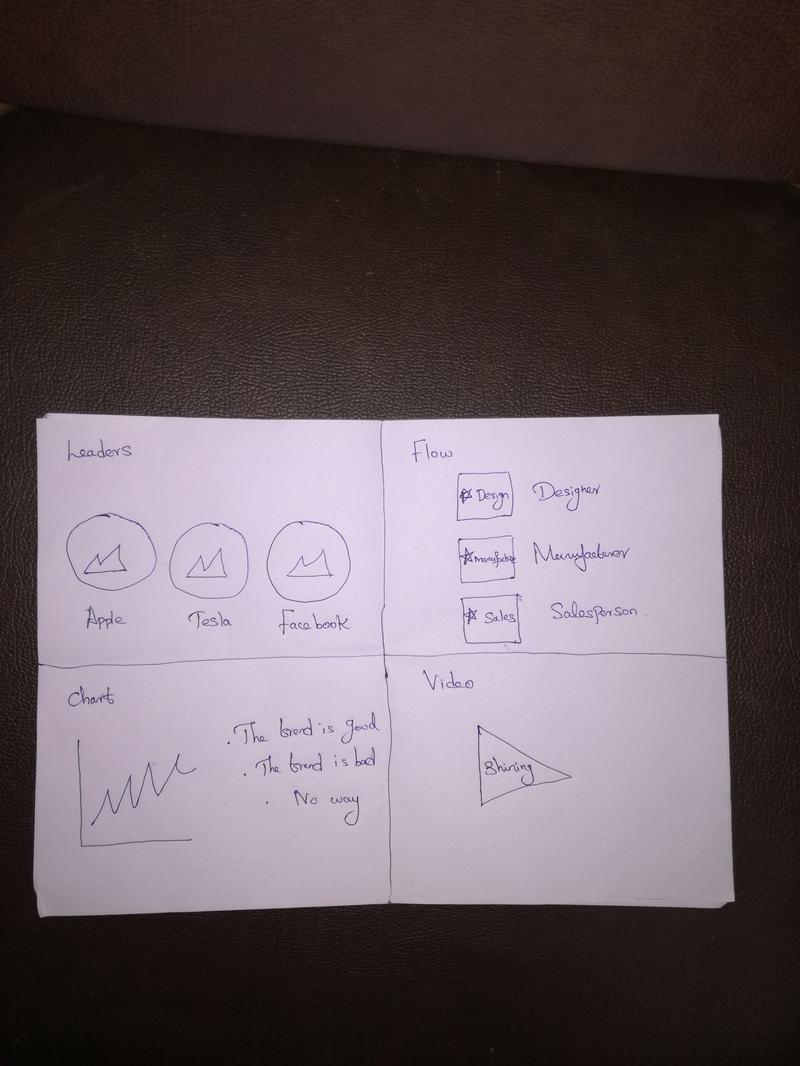 Leaders
Apple
Tesla
Facebook
Flow
Design
Designer
Manufacture
Manufacturer
Sales
Salesperson.
Chart
. The trend is good
. The trend is bad
. No way
Video
Shining